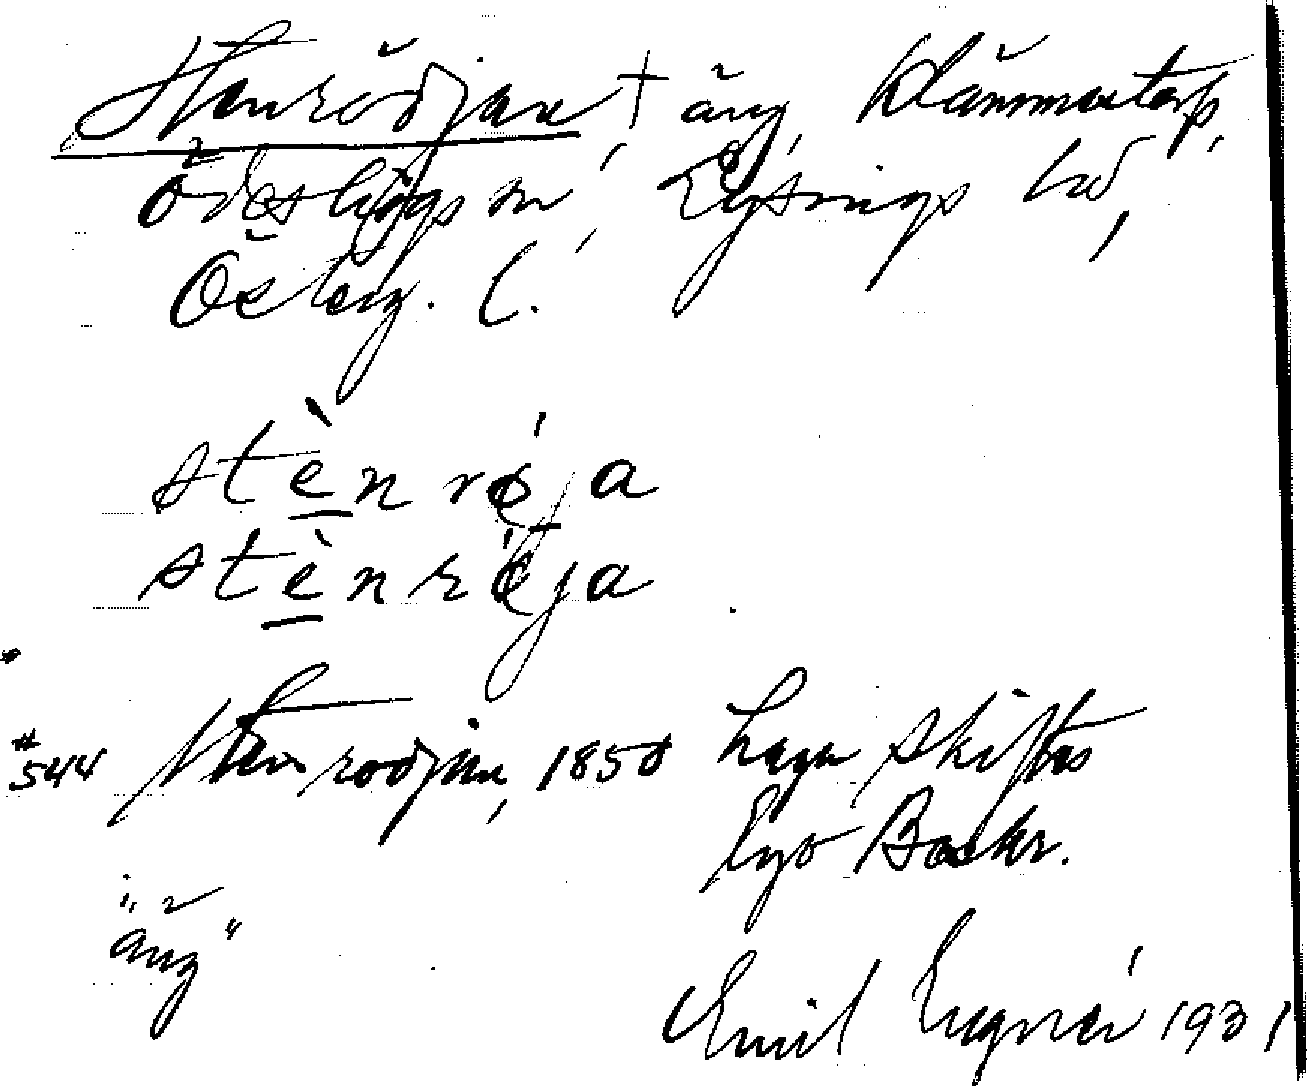 Stenrödjan † äng, Klämmestorp,
Ödeshögs sn, Lysings hd,
Österg. l.
stènrö́ja
stènrö́ja
# 544 Stenrödjan, 1850 Laga skiftes
"äng"
Emil Lugnér 1931